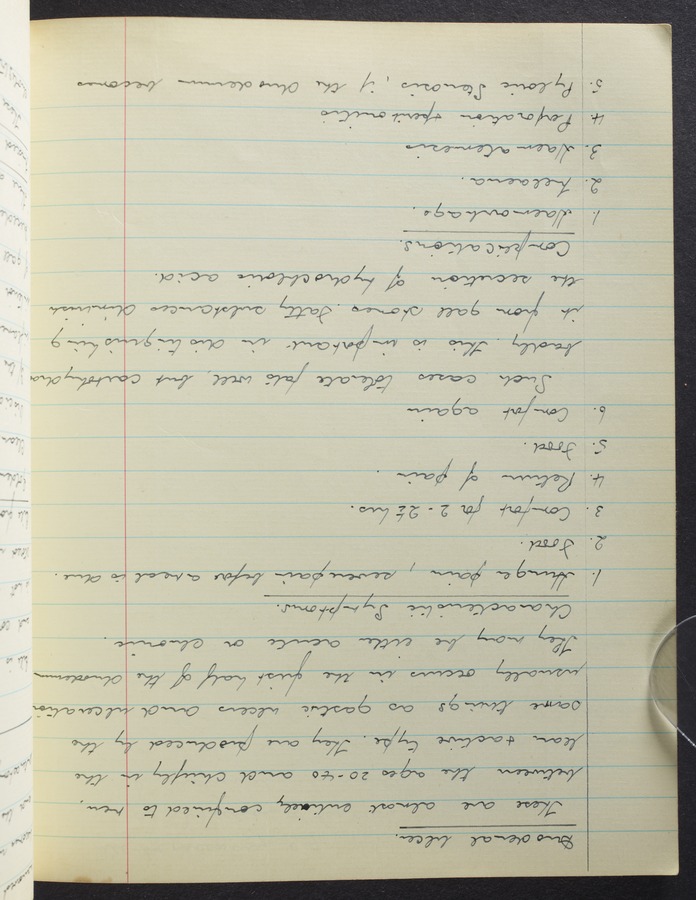 Duodenal Ulcer.
These are almost entirely confined to men,
between the ages 20-40 and chiefly in the
lean + active type. They are produced by the
same things as gastric ulcers and ulceration
usually occurs in the first half of the duodenum
They may be either acute or chronic.
Characteristic Symptoms.
1. Hunger pain, severe pain before a meal is due.
2. Food.
3. Comfort for 2 - 2½ hrs.
4. Return of pain.
5. Food.
6. Comfort again
Such cases tolerate fats well, but carbohydra
badly. This is important in distinguishing
it from gall stones. Fatty substances diminish
the secretion of hydrochloric acid.
Complications.
1. Haemorrhage.
2. Melaena.
3. Haematemesis
4. Perforation + peritonitis
5. Pyloric Stenosis, if the duodenum becomes